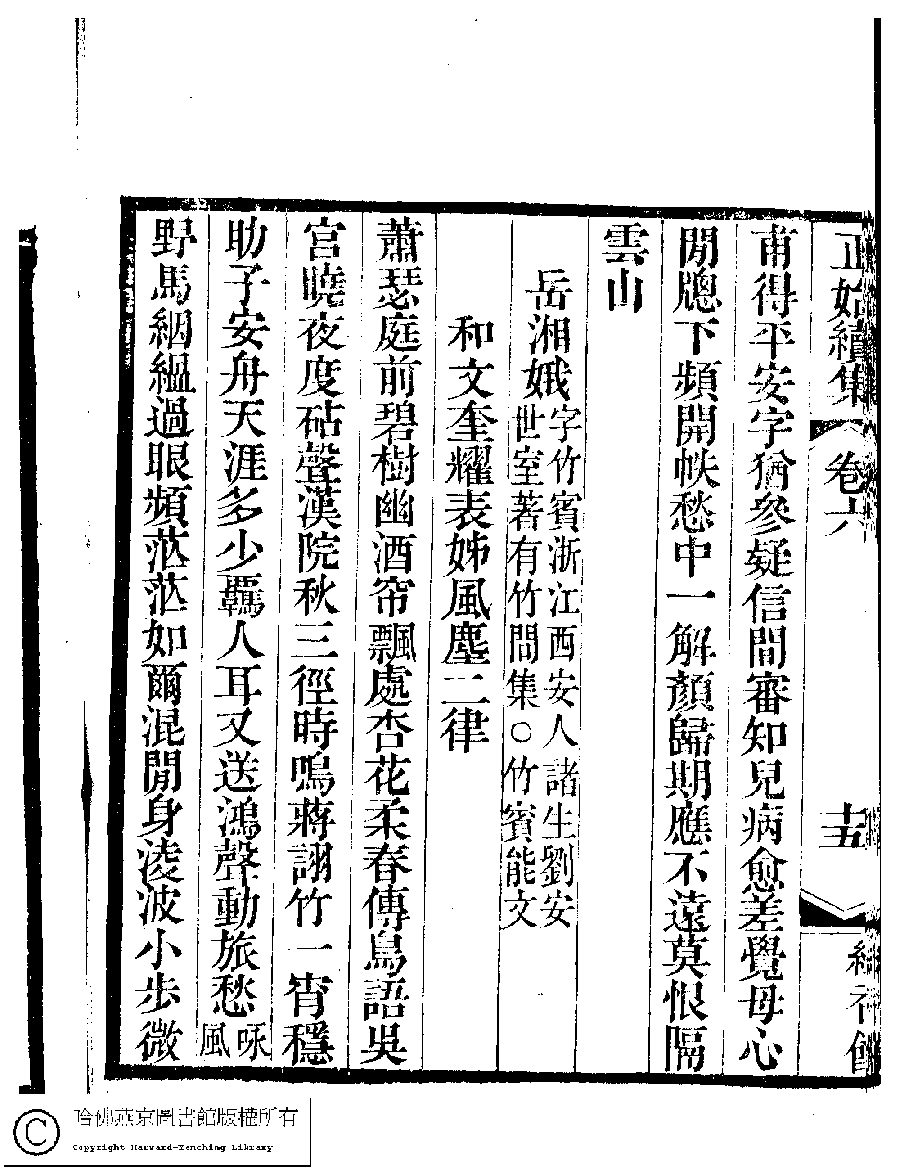 正始續集 卷六 十五
甫得平安字猶參疑信間審知兒病愈差覺母心
閒牕下頻開帙愁中一解顏歸期應不遠莫恨隔
雲山
岳湘娥字竹賓浙江西安人諸生劉安
世室著有竹問集○竹賓能文
和文奎耀表姊風塵二律
蕭瑟庭前碧樹幽酒帘飄處杏花柔春傳鳥語吳
宮曉夜度砧聲漢院秋三徑時鳴蔣詡竹一宵穩
助子安舟天涯多少羈人耳又送鴻聲動旅愁咏風
野馬絪縕過眼頻茫茫如爾混閒身淩波小步微
哈佛燕京圖書館版權所有
Copyright Harvard-Yenching Library